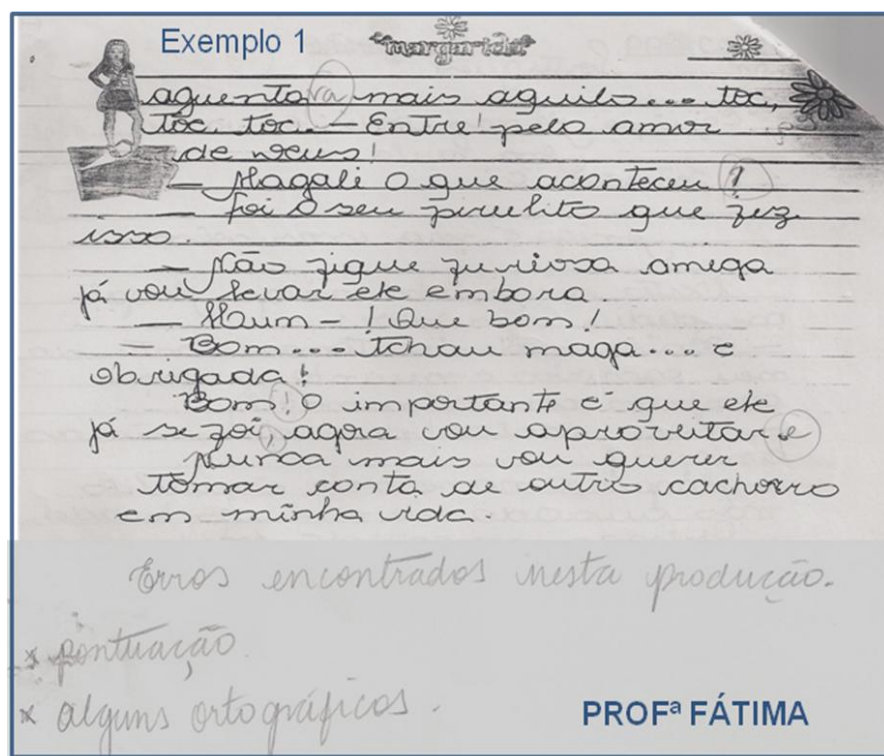 Exemplo 1
margarida
aguentara mais aquilo... toc,
toc, toc. - Entre! pelo amor
de Deus!
- Magali o que aconteceu?
- foi o seu pirulito que fez
isso.
- Não fique furiosa amiga
já vou levar ele embora.
- Haum - ! Que bom!
- Bom... tchau maga... e
obrigada!
Bom! o importante é que ele
já se foi, agora vou aproveitar e
Nunca mais vou querer
tomar conta de outro cachorro
em minha vida.
Erros encontrados nesta produção.
x pontuação
x alguns ortográficos.
PROFª FÁTIMA